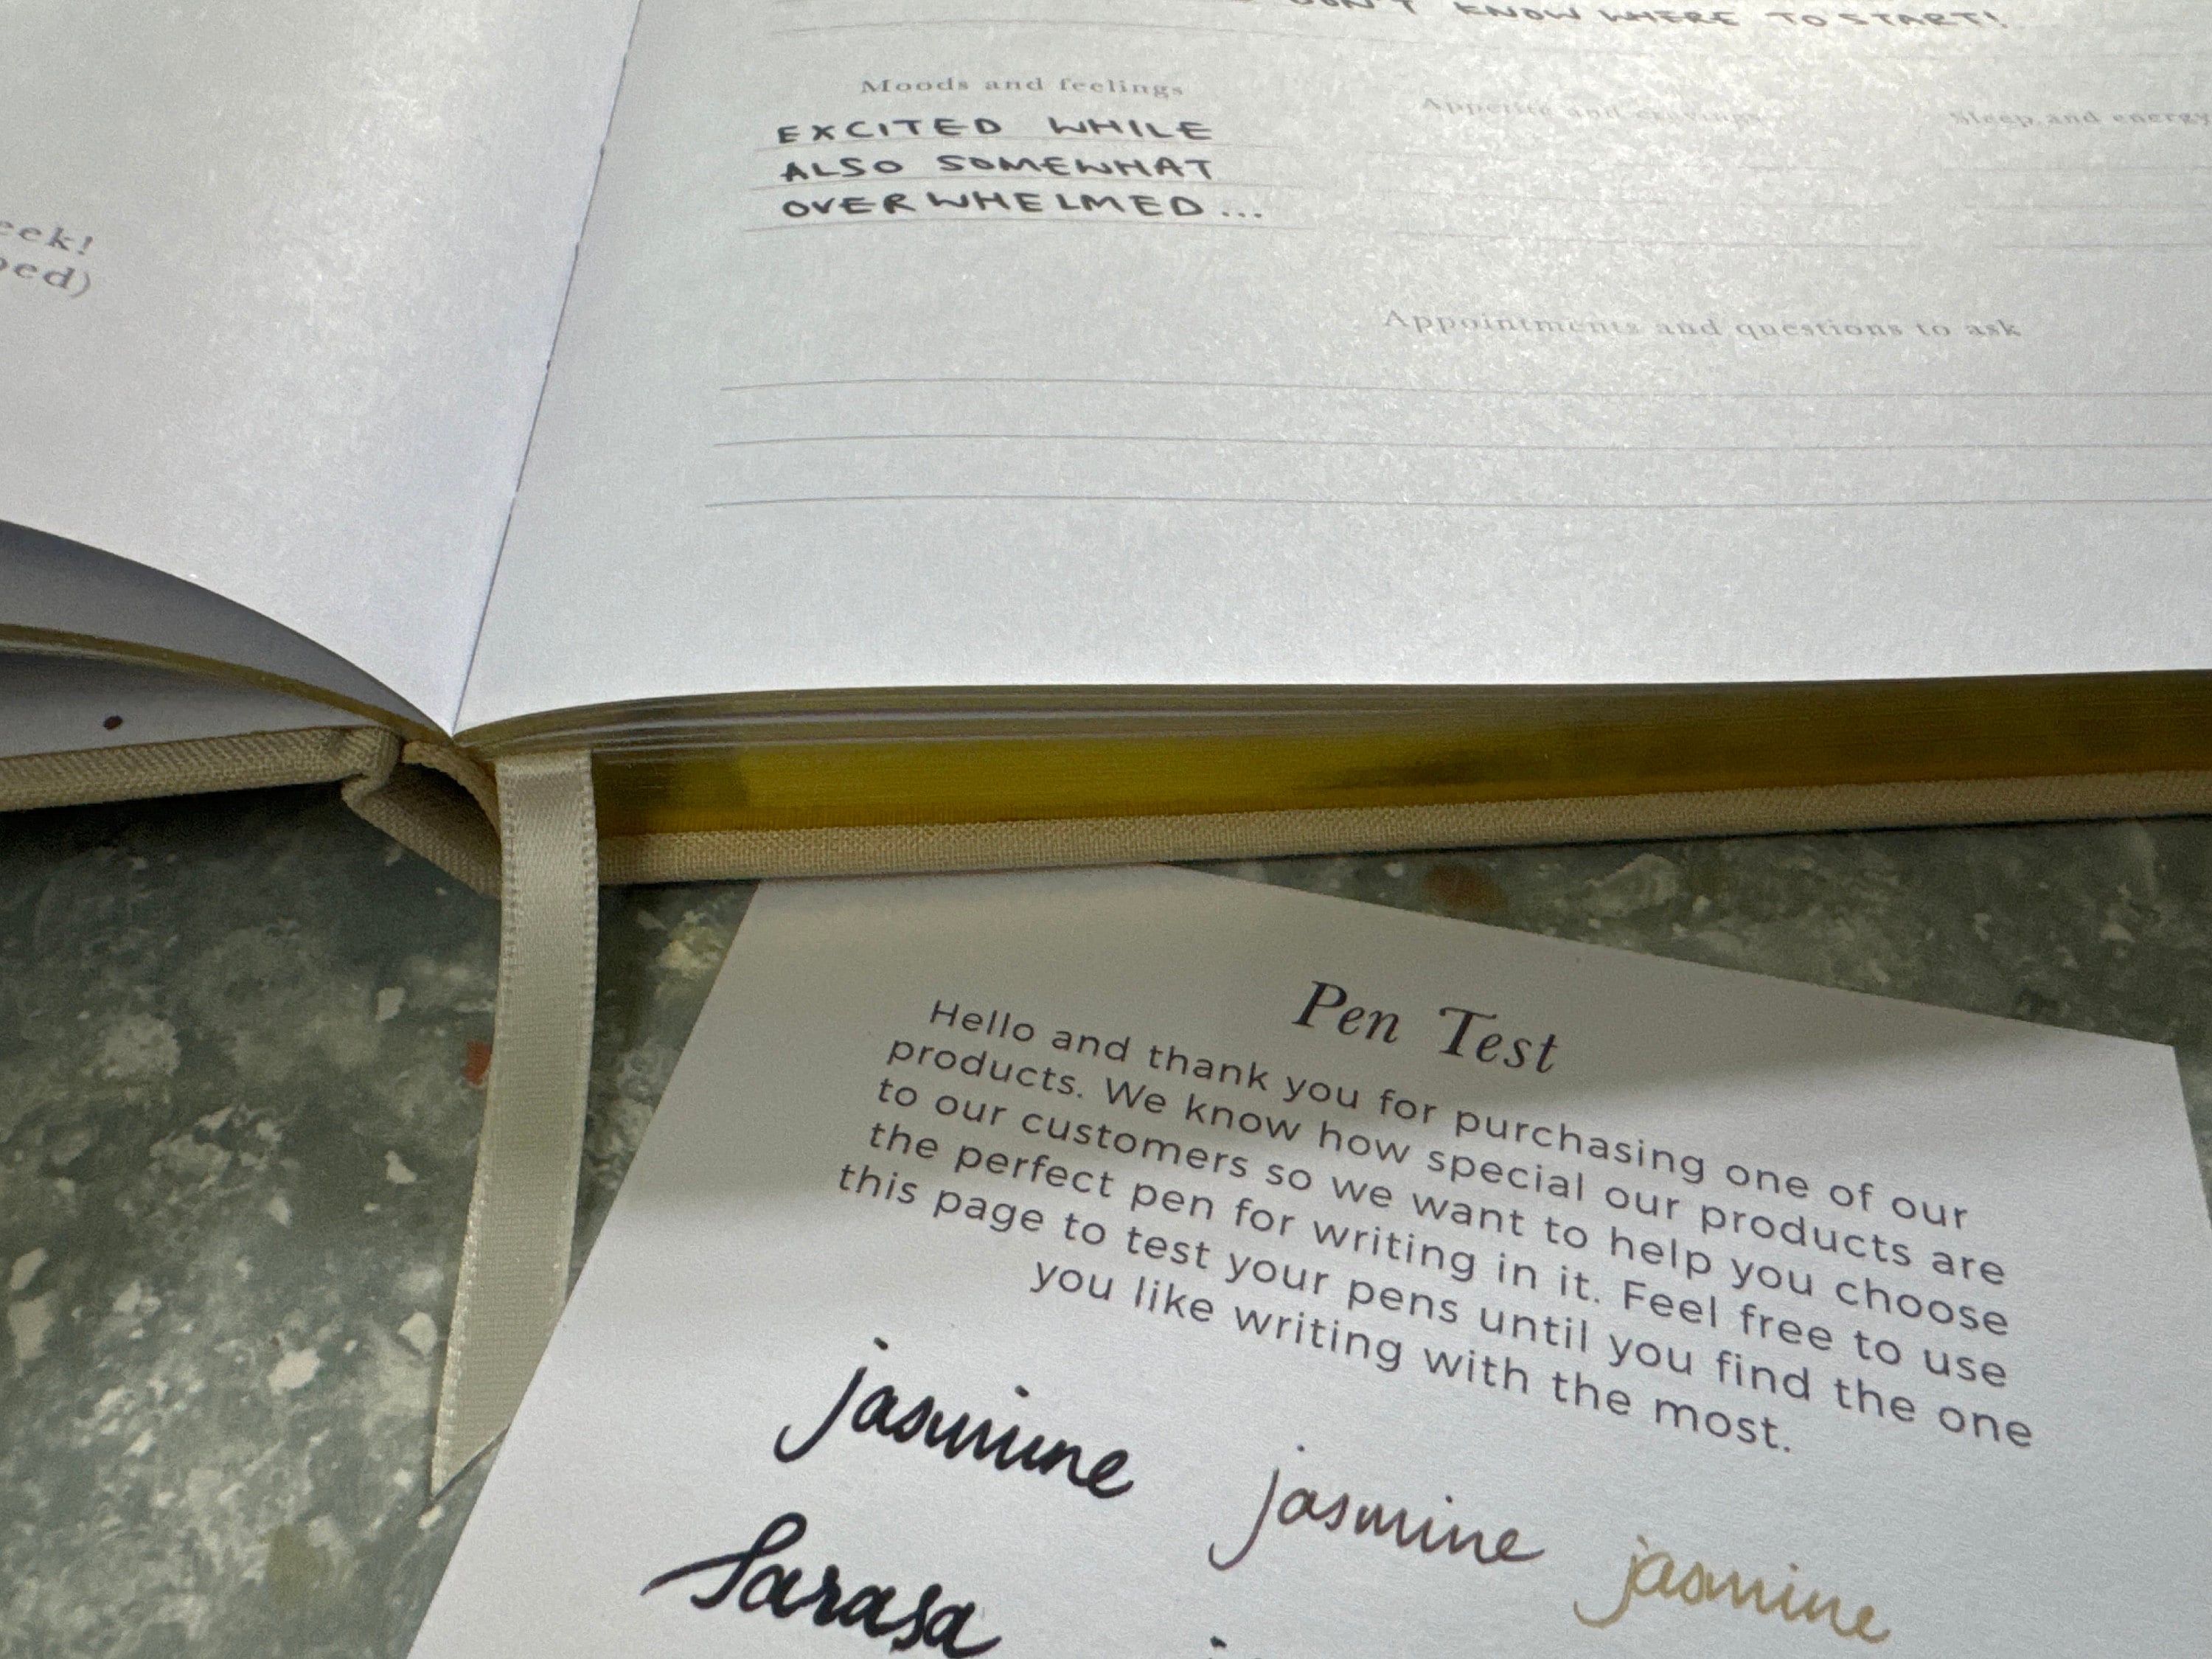 DON'T KNOW WHERE TO START!
Moods and feelings
EXCITED WHILE
ALSO SOMEWHAT
OVERWHELMED...
Appetite and cravings
Sleep and energy
Appointments and questions to ask
Pen Test
Hello and thank you for purchasing one of our
products. We know how special our products are
to our customers so we want to help you choose
the perfect pen for writing in it. Feel free to use
this page to test your pens until you find the one
you like writing with the most.
jasmine
jasmine
jasmine
Sarasa